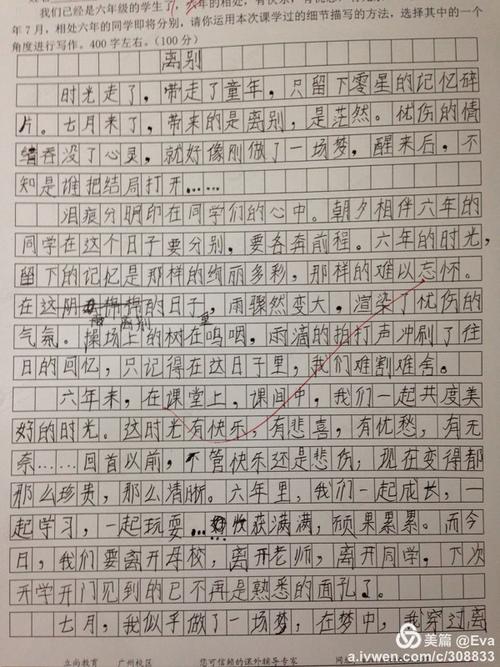 我们已经是六年级的学生了，六年的相处，有快乐，有忧愁，有无
年7月，相处六年的同学即将分别，请你运用本次课学过的细节描写的方法，选择其中的一个
角度进行写作。400字左右。(100分)
离别
时光走了，带走了童年，只留下零星的记忆碎
片。七月来了，带来的是离别，是茫然。忧伤的情
绪吞没了心灵，就好像刚做了一场梦，醒来后，不
知是谁把结局打开……
泪痕分明印在同学们的心中。朝夕相伴六年的
同学在这个日子要分别，要各奔前程。六年的时光，
留下的记忆是那样的绚丽多彩，那样的难以忘怀。
在这阴的日子，雨骤然变大，渲染了忧伤的
离别重
气氛。操场上的树在呜咽，雨滴的拍打声冲刷了往
日的回忆，只记得在这日子里，我们难割难舍。
六年来，在课堂上，课间中，我们一起共度美
好的时光。这时光有快乐，有悲喜，有忧愁，有无
奈……回首以前，不管快乐还是悲伤，现在变得都
那么珍贵，那么清晰。六年里，我们一起成长，一
起学习，一起玩耍……收获满满，硕果累累。而今
日，我们要离开母校，离开老师，离开同学，下次
开学开门见到的已不再是熟悉的面孔了。
七月，我似乎做了一场梦，在梦中，我穿过离
立尚教育 广州校区 您可信赖的课外辅导专家 网
美篇 @Eva
a.ivwen.com/c/308833